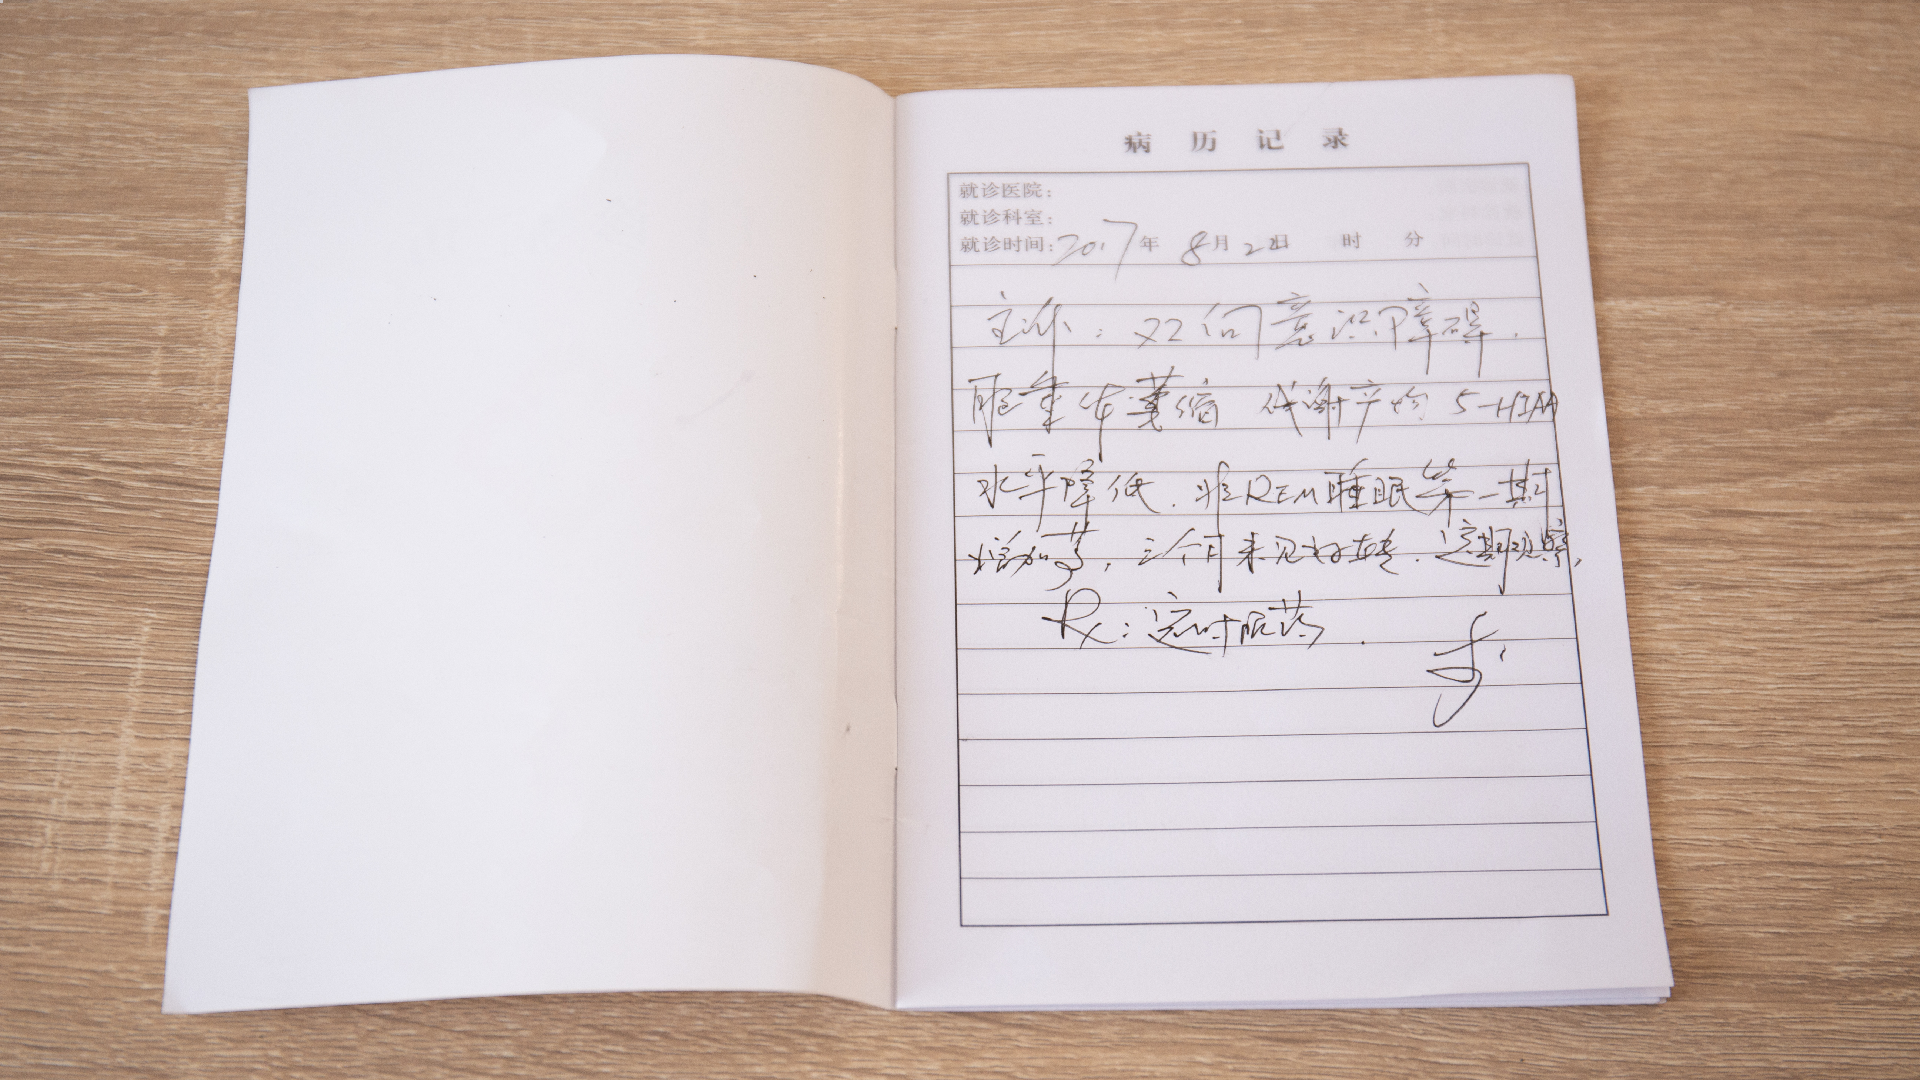 病历记录
就诊医院:
就诊科室:
就诊时间: 2017年 8月22日 时 分
主诉: 双向意识障碍.
脑垂体萎缩 代谢产物 5-HIAA
水平降低. 非REM睡眠第一期
增加等, 三个月未见好转. 定期观察,
Rx: 定时服药.